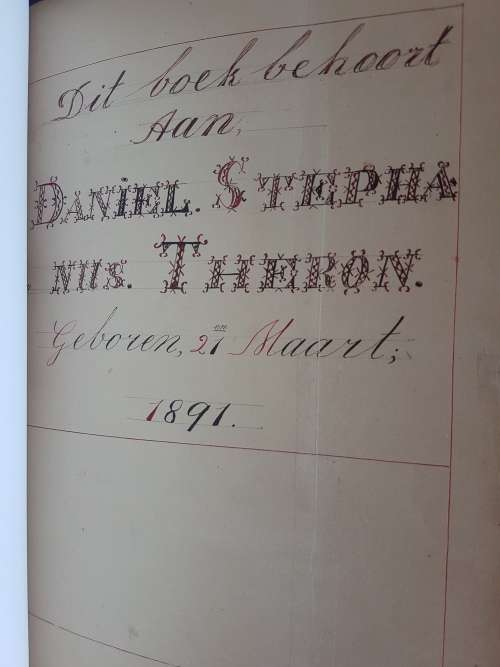 Dit boek behoort
Aan,
DANiEL. STEPHA
NUS. THERON.
Geboren, 21en Maart;
1891.